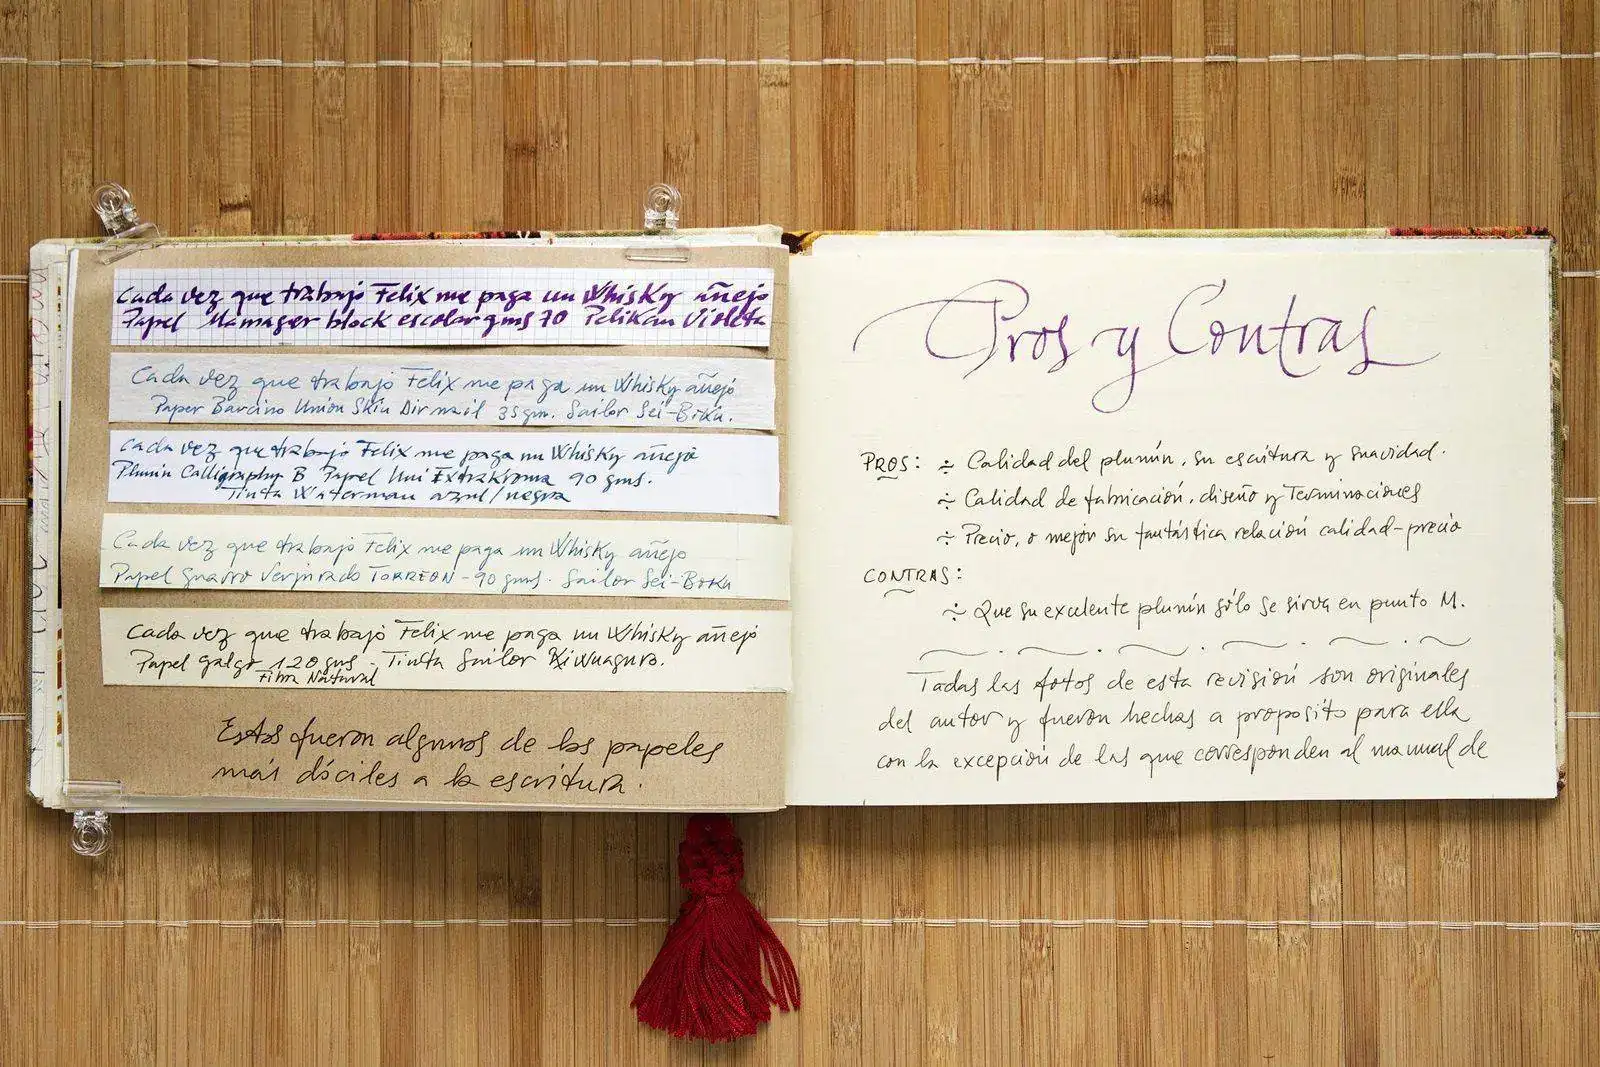 Cada vez que trabajo Felix me paga un Whisky añejo
Papel Manager block escolar gms 70 Pelikan Violeta
Cada vez que trabajo Felix me paga un Whisky añejo
Paper Barcino Union Skin Air mail 35 gm. Sailor Sei-Boku.
Cada vez que trabajo Felix me paga un Whisky añejo
Plumín Calligraphy B Papel Uni Extrakroma 90 gms.
Tinta Waterman azul/negra
Cada vez que trabajo Felix me paga un Whisky añejo
Papel Guarro Verjurado TORREON - 90 gms. Sailor Sei-Boku
Cada vez que trabajo Felix me paga un Whisky añejo
Papel galgo 120 gms - Tinta Sailor Kiwaguro.
Fibra Natural
Estos fueron algunos de los papeles
más dóciles a la escritura.
Pros y Contras
PROS: ÷ Calidad del plumín, su escritura y suavidad.
÷ Calidad de fabricación, diseño y Terminaciones
÷ Precio, o mejor su fantástica relación calidad-precio
CONTRAS:
÷ Que su excelente plumín sólo se sirva en punto M.
Todas las fotos de esta revisión son originales
del autor y fueron hechas a proposito para ella
con la excepción de las que corresponden al manual de